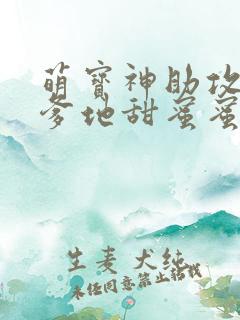 萌宝神助攻
爹地甜蜜蜜
生麦 犬纯
未经同意禁止转载